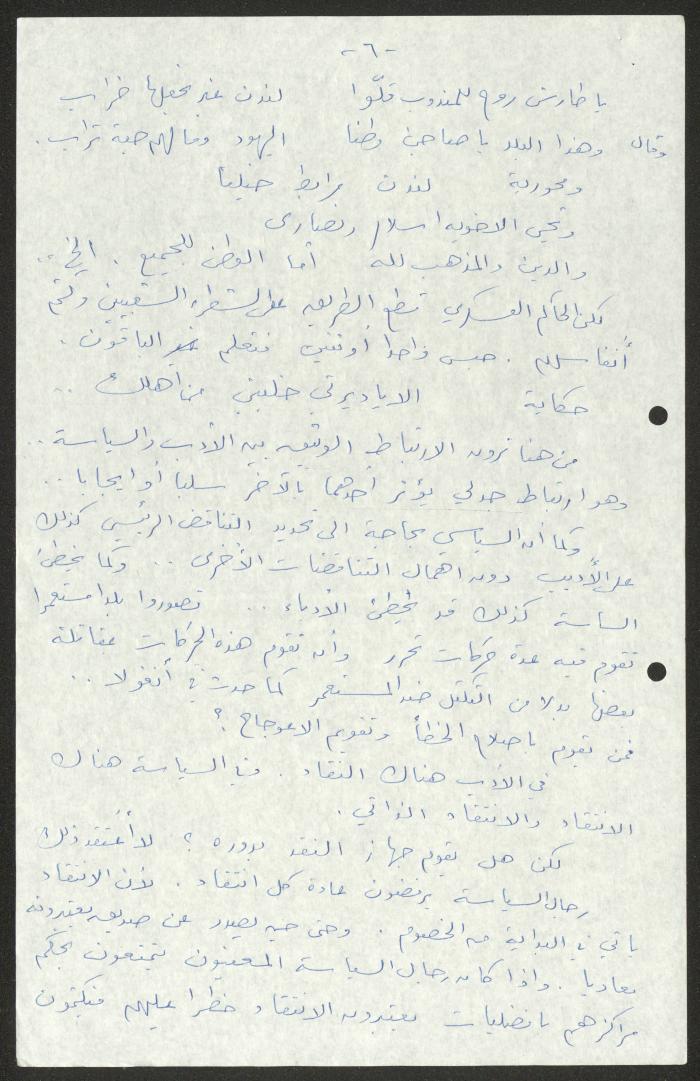 -٦-
يا طارش روح للمندوب قلّوا لندن غير نجعلها خراب
وقال وهذا البلد يا صاحبي وطنا اليهود وما لهم حبة تراب.
ومحوربة لندن مرابط خيلنا
ونحن الاخوية اسلام ونصارى
والدين والمذهب لله أما الوطن للجميع. الخ..
لكن الحاكم العسكري قطع الطريق على الشعراء الشعبيين وكتم
أنفاسهم. حبس واحدا أو اثنين فتعلم الباقون.
حكاية الا يا ديرتي خليني من أهلك ..
من هنا ترون الارتباط الوثيق بين الأدب والسياسة..
وهو ارتباط جدلي يؤثر أحدهما بالآخر سلبا أو ايجابا..
وكما أن السياسي بحاجة الى تحديد التناقض الرئيسي كذلك
على الأديب دون اهمال التناقضات الأخرى .. وكما يخطئ
الساسة كذلك قد يخطئ الأدباء .. تصوروا بلدا مستعمرا
تقوم فيه عدة حركات تحرر وأن تقوم هذه الحركات بمقاتلة
بعضها بدلا من التكتل ضد المستعمر كما حدث في أنغولا ..
فمن يقوم باصلاح الخطأ وتقويم الاعوجاج؟
في الأدب هناك النقاد. وفي السياسة هناك
الانتقاد والانتقاد الذاتي.
لكن هل يقوم جهاز النقد بدوره؟ لا أعتقد ذلك
رجال السياسة يرفضون عادة كل انتقاد. لأن الانتقاد
ياتي في البداية من الخصوم. وحتى حين يصدر عن صديق يعتبرونه
معاديا. واذا كان رجال السياسة المعنيون يتمتعون بحكم
مراكزهم بافضليات يعتبرون الانتقاد خطرا عليهم فيكتمون